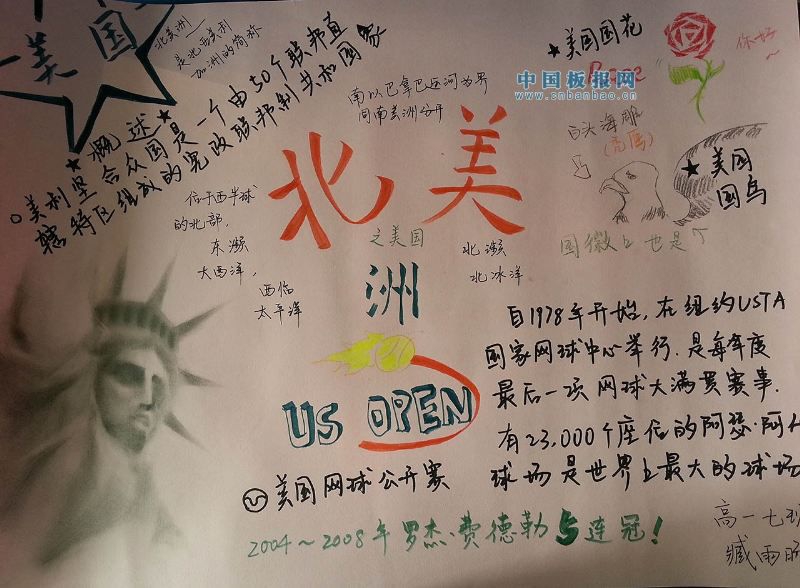 美国
北美洲
是北亚美利
加洲的简称
★概述★
美利坚合众国是一个由50个联邦直
辖特区组成的宪政联邦制共和国家
南以巴拿巴运河为界
同南美洲分开
★美国国花
Rose
你好~
中国板报网
www.cnbanbao.cn
白头海雕
(秃鹰)
★美国
国鸟
国徽上也是
北美
洲
之美国
位于西半球
的北部,
东濒
大西洋,
西临
太平洋
北濒
北冰洋
US OPEN
美国网球公开赛
自1978年开始,在纽约USTA
国家网球中心举行.是每年度
最后一项网球大满贯赛事.
有23,000个座位的阿瑟·阿什
球场是世界上最大的球场
2004~2008年罗杰·费德勒5连冠!
高一七班
臧雨